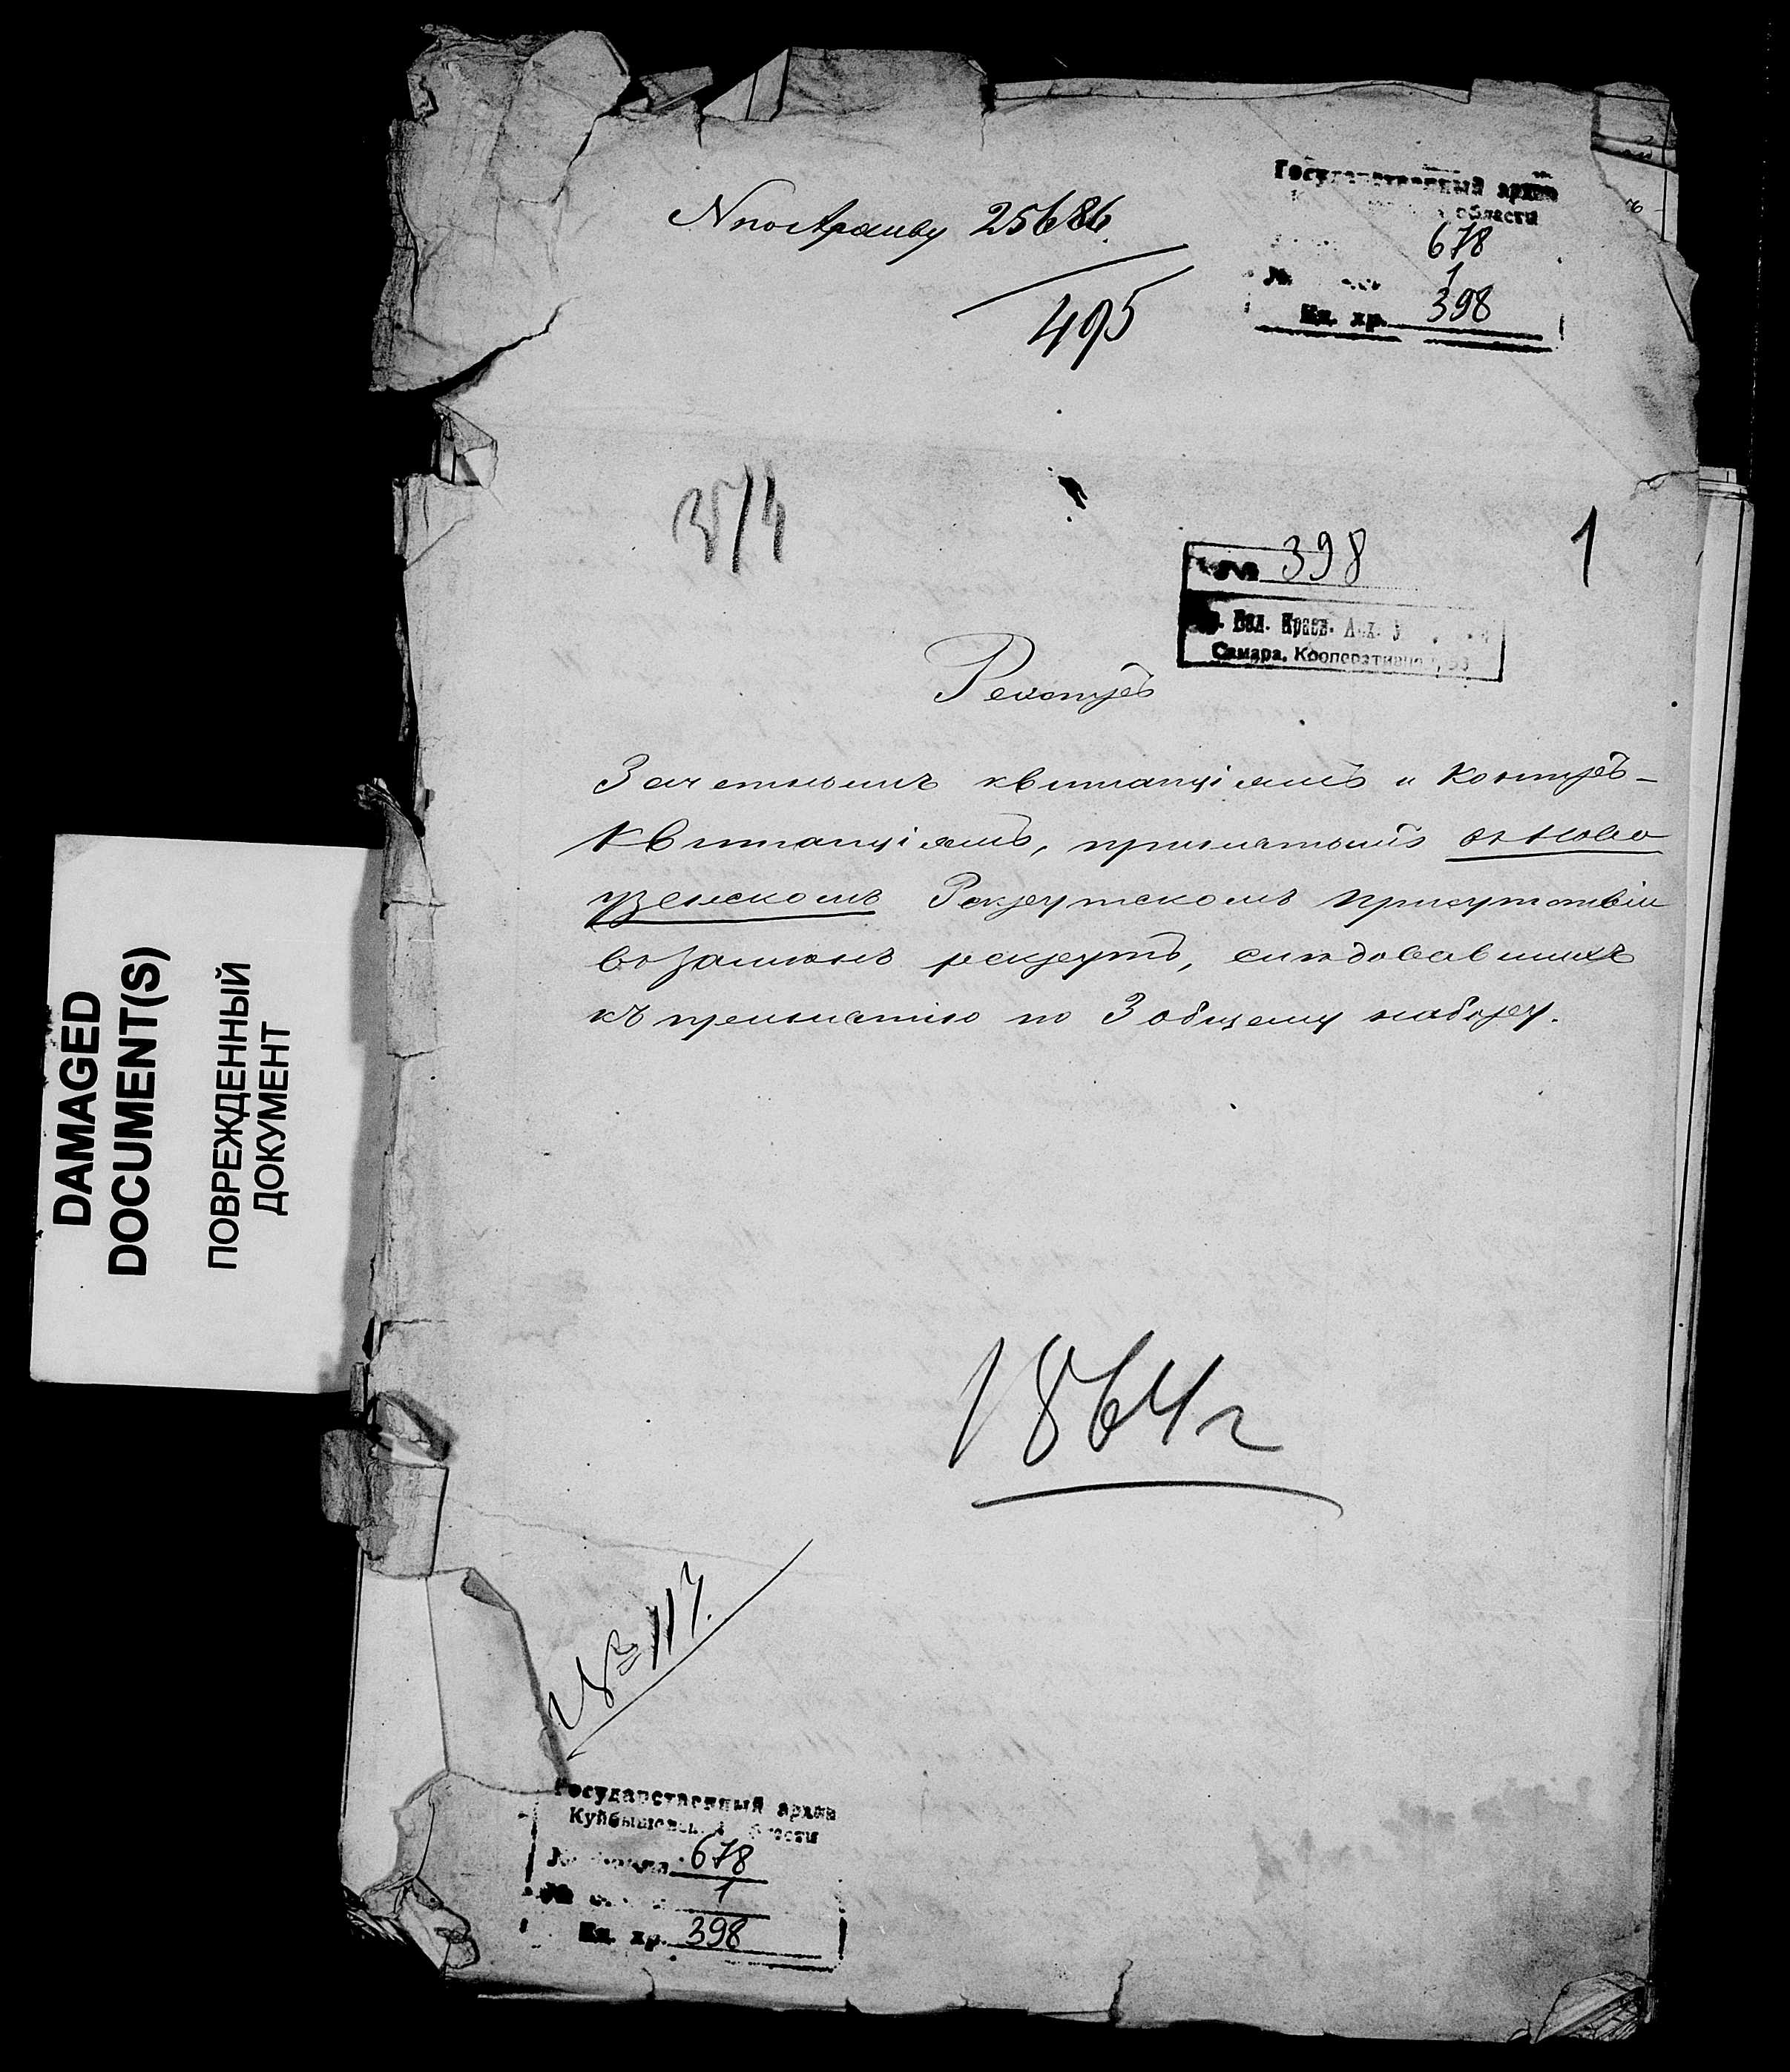 N по Архиву 25686
495
Государственный архив
области
678
№ 1
Ед. хр. 398
1
№ 398
Самара, Кооперативная, 53
Реестръ
Зачетнымъ квитанціямъ и контръ-
квитанціямъ, принятымъ въ Ново
узенскомъ Рекрутскомъ присутствіи
въ замѣнъ рекрутъ, слѣдовавшихъ
къ принятію по 3 общему набору.
DAMAGED
DOCUMENT(S)
ПОВРЕЖДЕННЫЙ
ДОКУМЕНТ
1864 г
№ 117.
Государственный архив
Куйбышевской области
№ фонда 678
№ 1
Ед. хр. 398